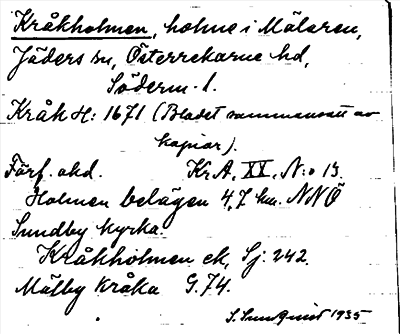 Kråkholmen, holme i Mälaren,
Jäders sn, Österrekarne hd,
Söderm. l.
Kråk H: 1671 (Bladet sammansatt av
kopior).
Förf. okd. Kr.A, XX, N:o 13.
Holmen belägen 4,7 km. NNÖ
Sundby kyrka.
Kråkholmen ek, Sj: 242.
Mälby Kråka G. 74.
S. Sundquist 1935